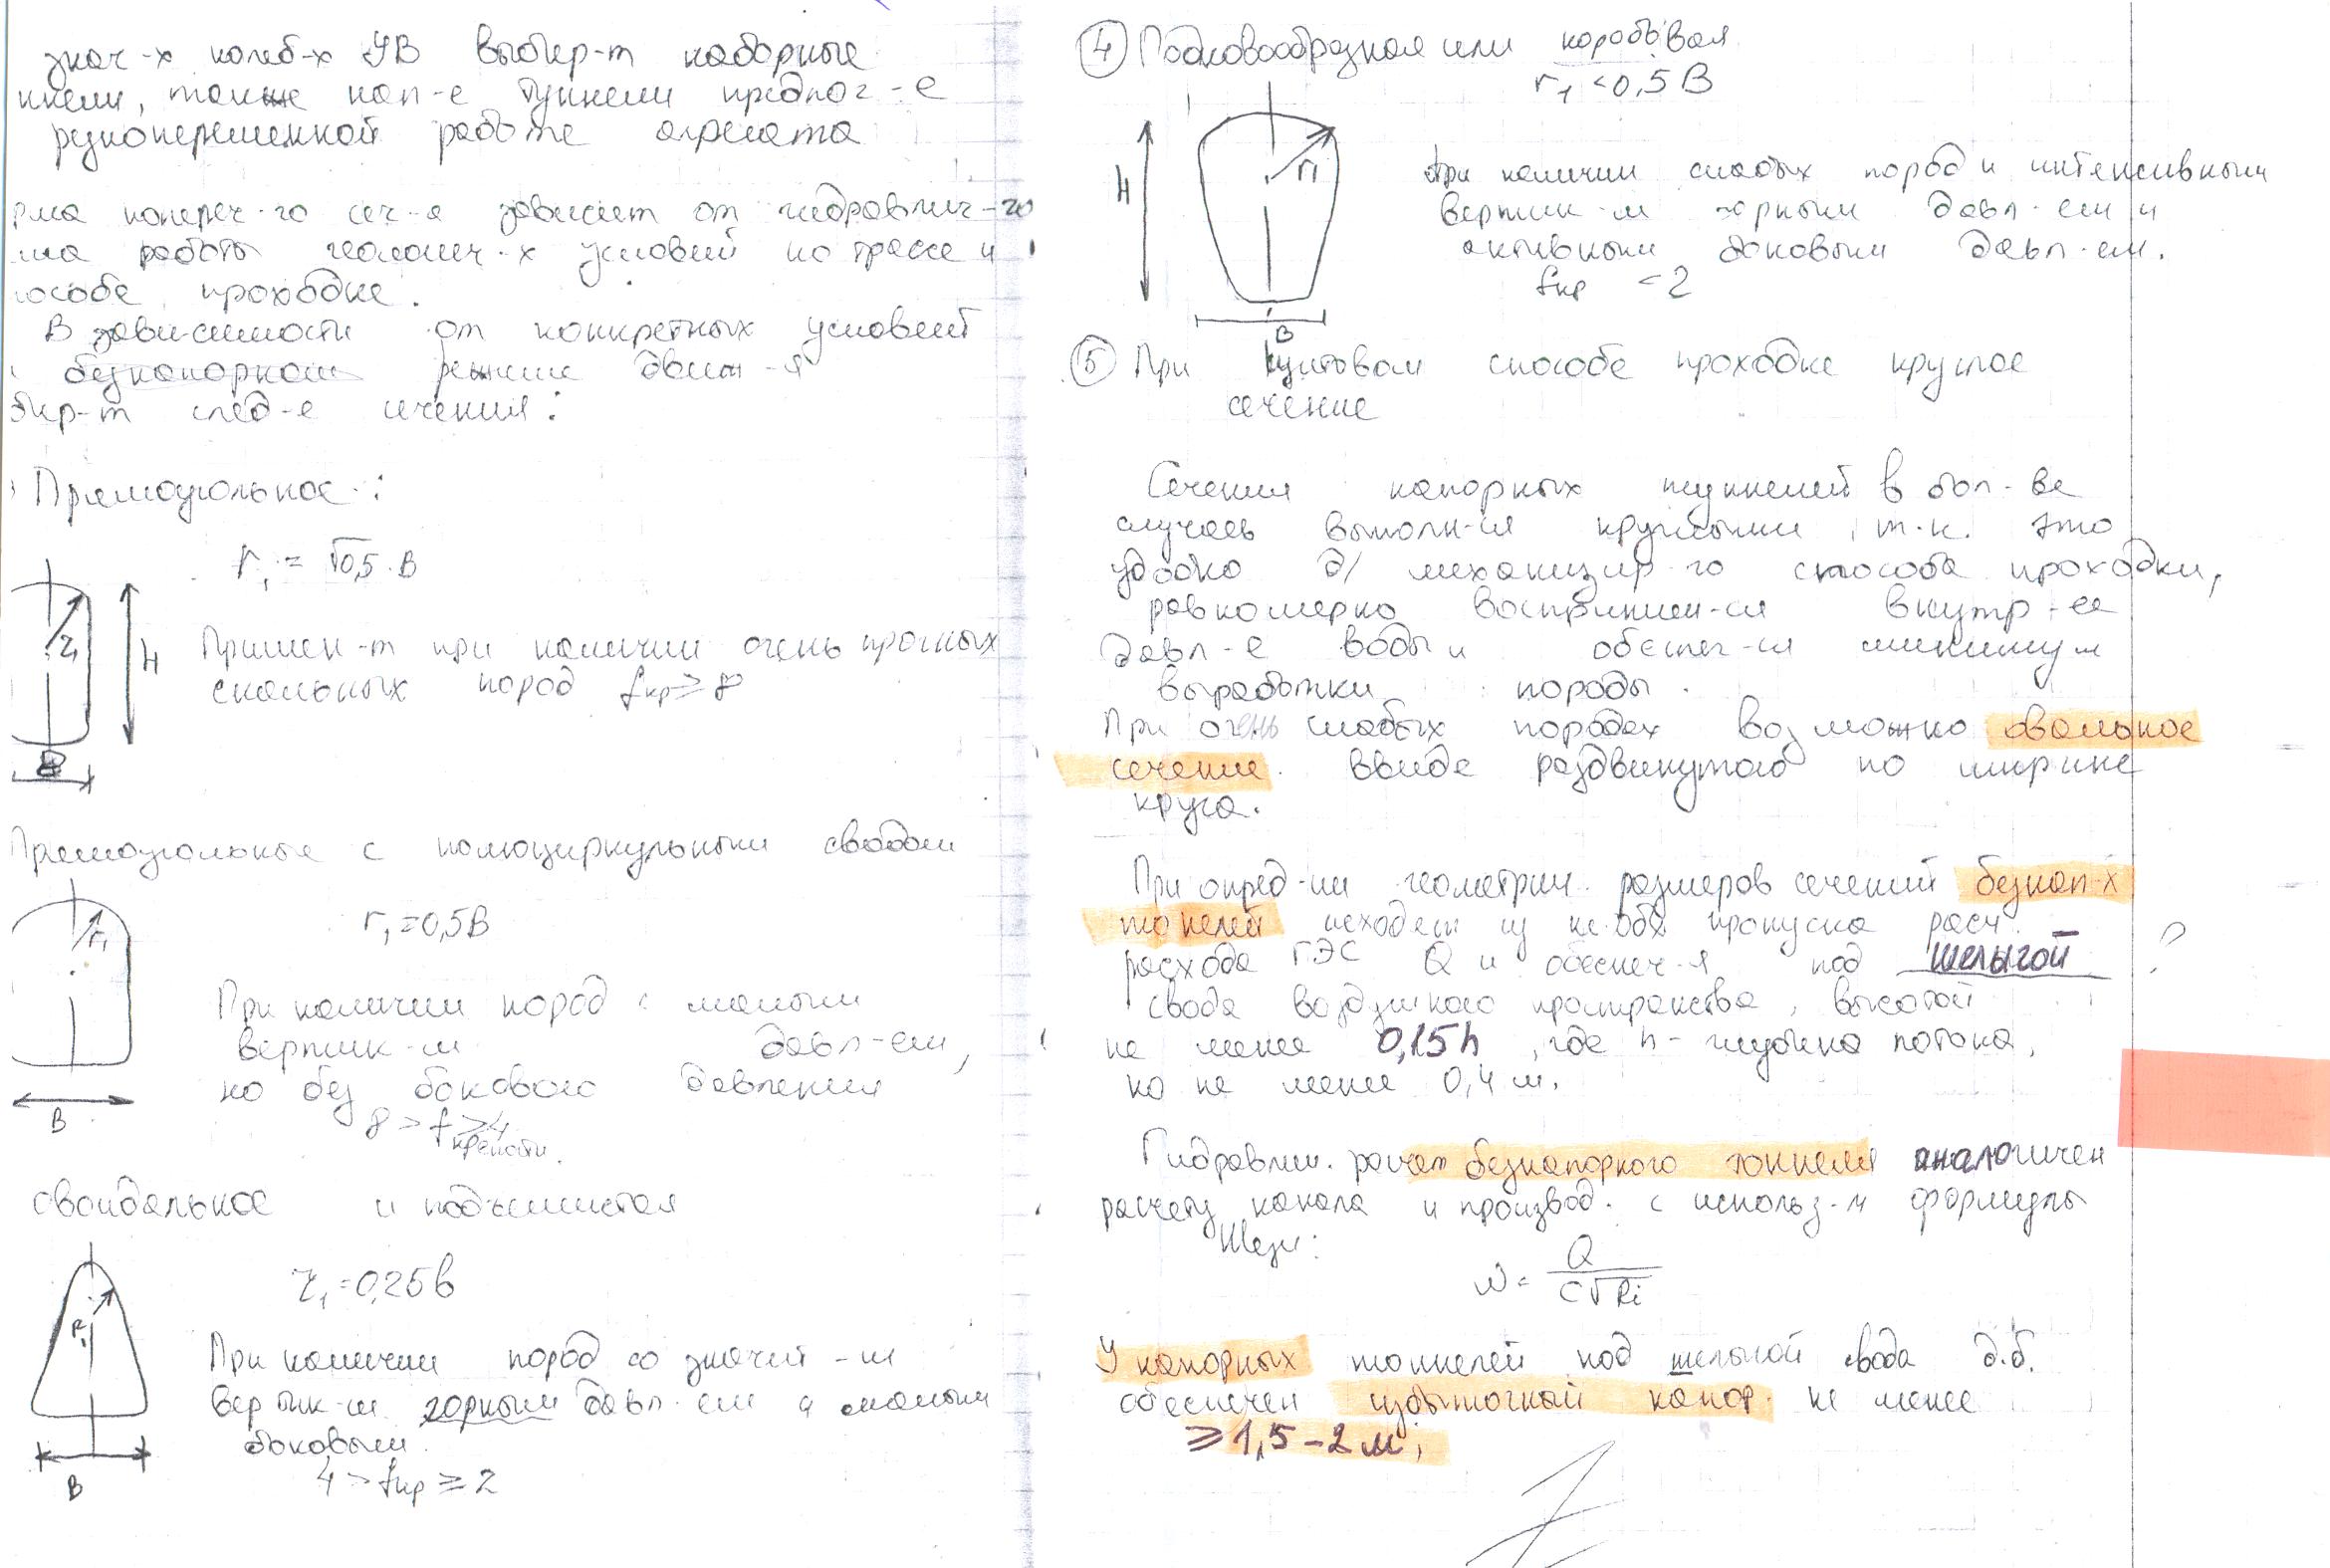 знач-х колеб-х УВ выбир-т напорные
ннели, также нап-е туннели предпоч-е
резкопеременной работе агрегата
рма попереч-го сеч-я зависит от гидравлич-го
ма работы геологич-х условий по трассе и
пособе проходке.
В зависимости от конкретных условий
безнапорном режиме движ-я
бир-т след-е сечения:
Прямоугольное:
r₁ = √0,5·B
r₁
H
Примен-т при наличии очень прочных
скальных пород fкр ≥ 8
B
Прямоугольные с полюциркульным сводом
r₁
r₁=0,5B
При наличии пород с малым
вертик-м давл-ем,
но без бокового давления
8 > f ≥ 4
крепости.
B
сводальное и подъемистая
r₁=0,25b
R₁
При наличии пород со значит-м
вертик-м горным давл-ем и малым
боковым.
4 > fкр ≥ 2
B
④ Подковообразная или коробовая
r₁<0,5B
H
r₁
B
При наличии слабых пород и интенсивным
вертик-м горным давл-ем и
активным боковым давл-ем.
fкр <2
⑤ При щитовом способе проходке круглое
сечение
Сечения напорных туннелей в бол-ве
случаев выполн-ся круглыми, т.к. это
удобно д/ механизир-го способа проходки,
равномерно воспринем-ся внутр-ее
давл-е воды и обеспеч-ся минимум
выработки породы.
При очень слабых породах возможно овальное
сечение ввиде раздвинутого по ширине
круга.
При опред-ии геометрич. размеров сечений безнап-х
тонелей исходят из необх пропуска расч.
расхода ГЭС Q и обеспеч-я под шелыгой ?
свода воздушного пространства, высотой
не менее 0,15h, где h - глубина потока,
но не менее 0,4 м.
Гидравлич. расчет безнапорного тоннеля аналогичен
расчету канала и производ. с использ-м формулы
Шези:
ω = Q / C√Ri
У напорных тоннелей под шелыгой свода д.б.
обеспечен избыточный напор не менее
≥ 1,5 – 2 м;